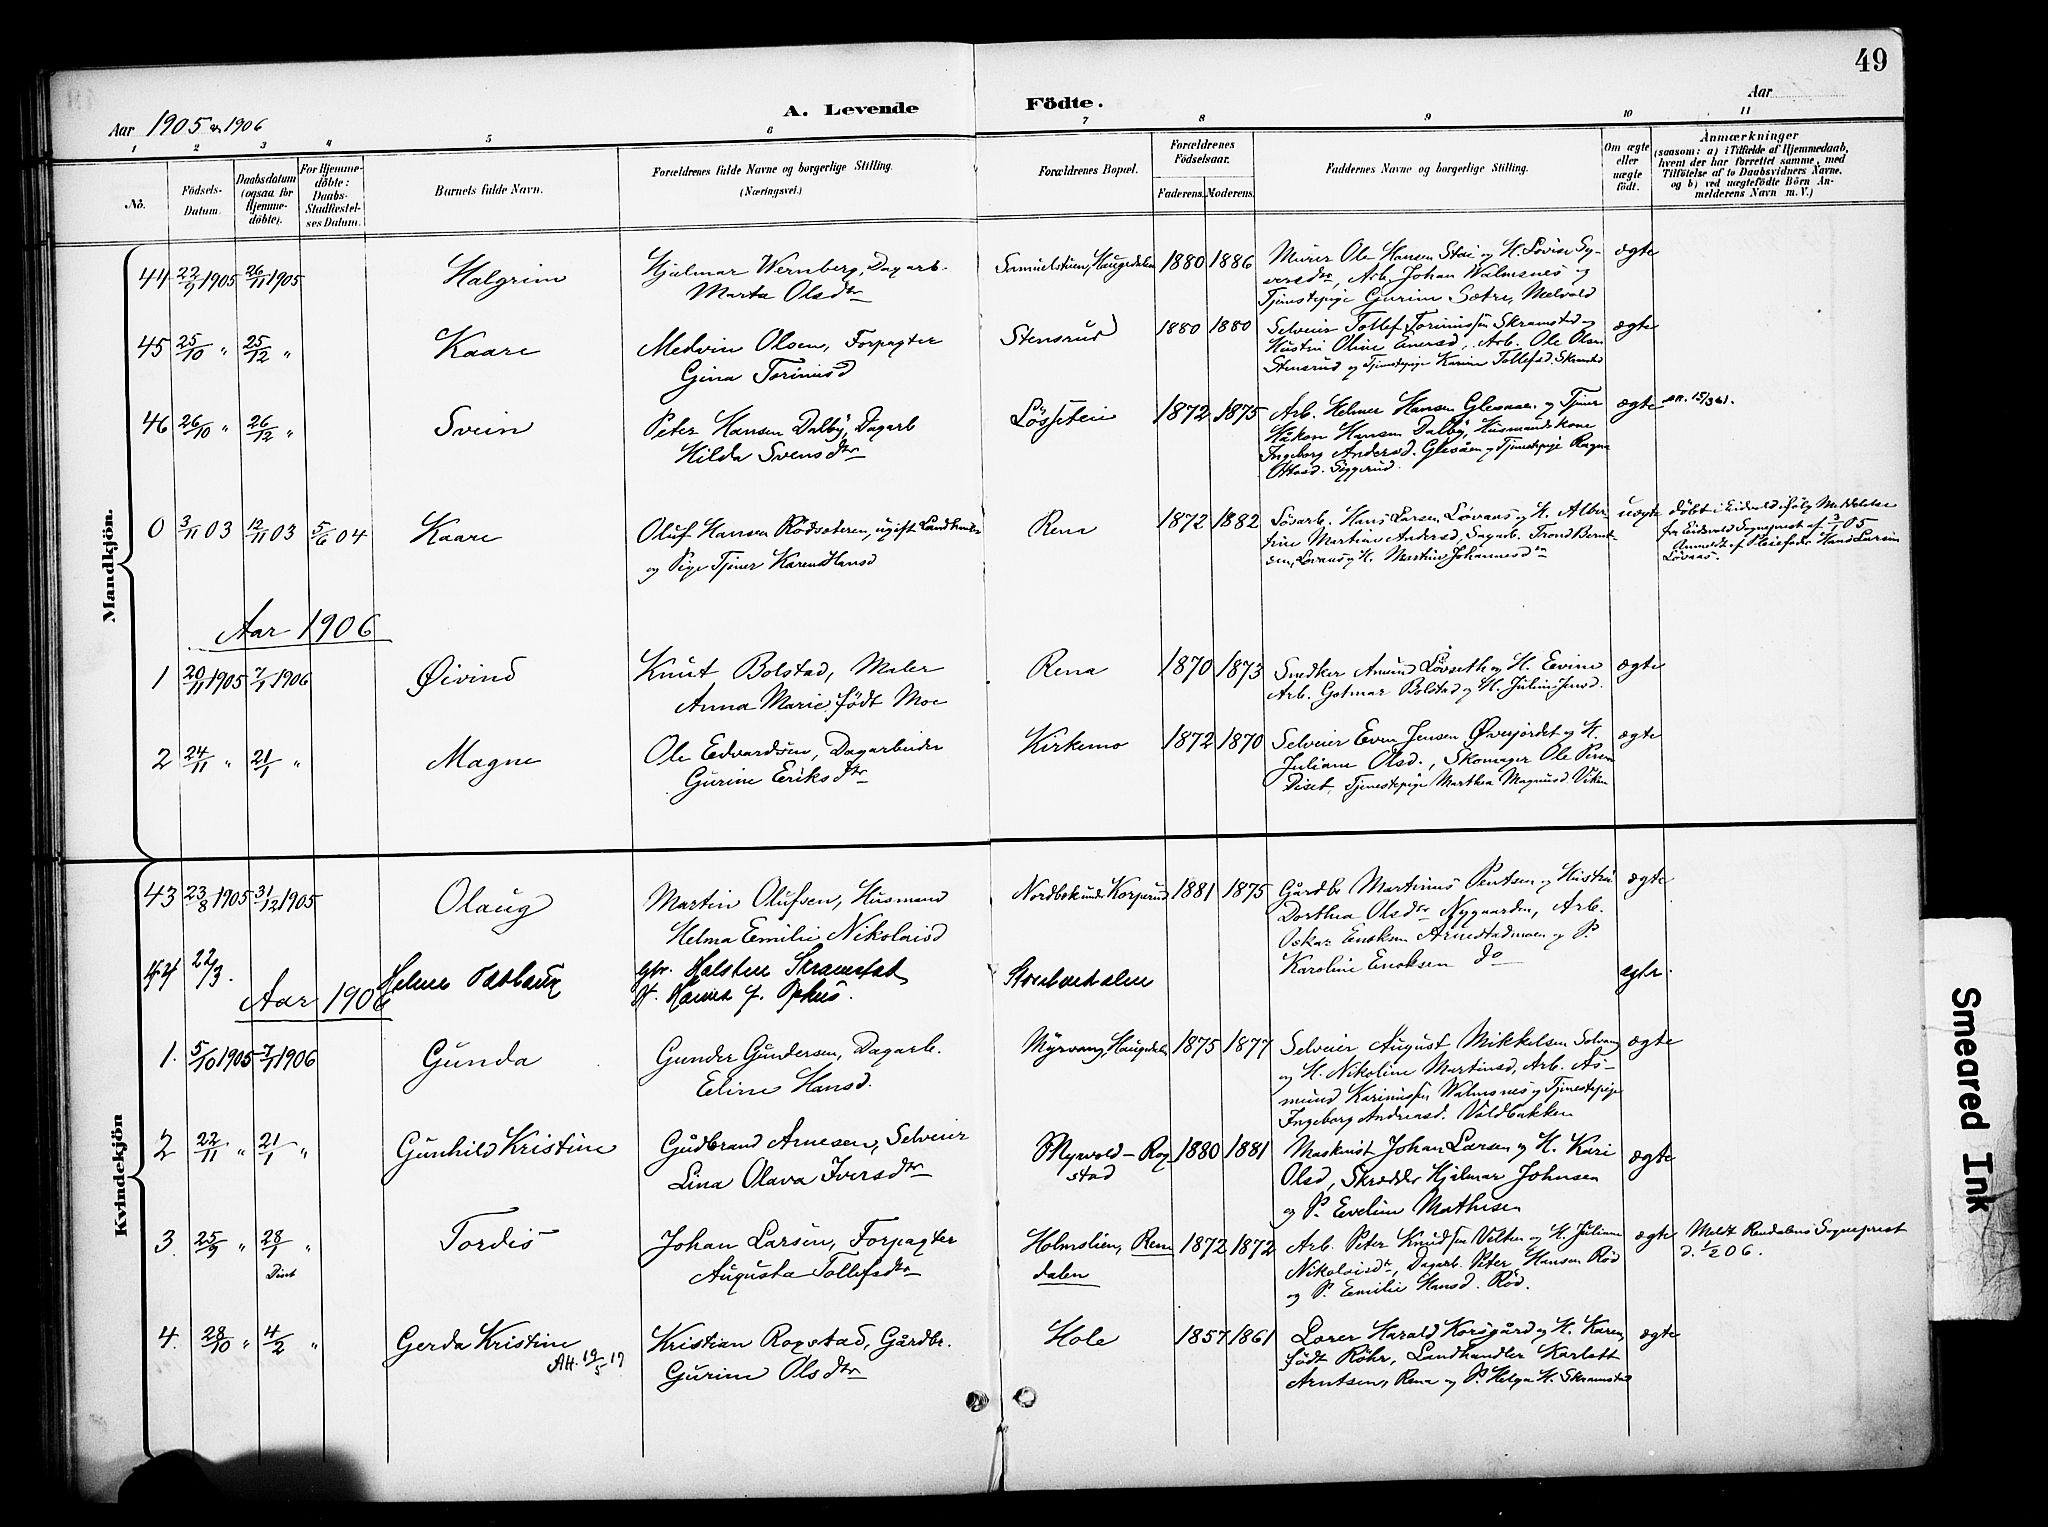 49
Aar 1905 & 1906
A. Levende Födte.
Aar
1 2 3 4 5 6 7 8 9 10 11
No.
Födsels-Datum.
Daabsdatum (ogsaa for Hjemmedöbte).
For Hjemmedöbte: Daabs-Stadfæstelses Datum.
Barnets fulde Navn.
Forældrenes fulde Navne og borgerlige Stilling. (Næringsvei.)
Forældrenes Bopæl.
Forældrenes Födselsaar.
Faderens. Moderens.
Faddernes Navne og borgerlig Stilling.
Om ægte eller uægte födt.
Anmærkninger
(saasom: a) i Tilfælde af Hjemmedaab, hvem der har forrettet samme, med Tilföielse af to Daabsvidners Navne. og b) ved uægtefödte Börn Anmelderens Navn m. V.)
Mandkjön.
44 22/9 1905 26/11 1905 Halgrim
Hjalmar Wernberg, Dagarb.
Marta Olsdtr
Samuelstuen, Haugedalen 1880 1886
Murer Ole Hansen Stai og H. Lovise Sy-
versdtr, Arb. Johan Valmsnes og
Tjenestepige Gurine Sætre, Melvold
ægte
45 25/10 " 25/12 " Kaare
Medvin Olsen, Forpagter
Gina Torinusd
Stensrud 1880 1880
Selveier Tollef Torinussen Skramstad og
Hustru Oline Enersd., Arb. Ole Olsen
Stensrud og Tjenestepige Karine Tollefsd. Skramstad
ægte
46 26/10 " 26/12 " Svein
Peter Hansen Dalby, Dagarb
Hilda Svensdtr
Lösseteie 1872 1875
Arb. Helmer Hansen Glesaaen og Tjener
Håkon Hansen Dalby, Husmandskone
Ingeborg Andersd. Glesåen og Tjenestepige Ragna
Ottosd. Siggerud.
ægte
15/3 61.
0 3/11 03 12/11 03 5/6 04 Kaare
Oluf Hansen Rödsæteren, ugift Landhandler
og Pige Tjener Karen Hansd
Rena 1872 1882
Lösarb. Hans Larsen Lövaas og H. Alber-
tine Martine Andersd, Sagarb. Trond Bernt-
sen, Lövaas og H. Martine Johannesdtr
uægte
döbt i Eidsvold ifölg Meddelelse
fra Eidsvold Sogneprest af 3/1 05
Anmeldt af Pleiefader Hans Larsen
Lövaas.
Aar 1906
1 20/11 1905 7/1 1906 Øivind
Knut Bolstad, Maler
Anna Marie födt Moe
Rena 1870 1873
Snedker Amund Lövseth og H. Evine
Arb. Gotmar Bolstad og H. Juline Jensd.
ægte
2 24/11 " 21/1 " Magne
Ole Edvardsen, Dagarbeider
Gurine Eriksdtr
Kirkemo 1872 1870
Selveier Even Jensen Øverjordet og H.
Juliane Olsd., Skomager Ole Persen
Diset, Tjenestepige Marthea Magnusd. Viken
ægte
Kvindekjön
43 23/8 1905 31/12 1905 Olaug
Martin Olufsen, Husmand
Helma Emilie Nikolaisd
Nordbek under Korperud 1881 1875
Gårdbr Martinus Pentsen og Hustru
Dorthea Olsdtr Nygaarden, Arb.
Oskar Enoksen Arnestadmoen og P.
Karoline Enoksen do
ægte
44 22/3. Helene
Gbr. Halsten Skramstad
H.
ægte.
Aar 1906
1. 5/10 1905 7/1 1906 Gunda
Gunder Gundersen, Dagarb.
Eline Hansd.
Myrvang, Haugedalen 1875 1877
Selveier August Mikkelsen Solvang
og H. Nikoline Martinsd, Arb. As-
mund Karinussen Valmsnes og Tjenestepige
Ingeborg Andreasd. Voldbakken
ægte
2 22/11 " 21/1 " Gunhild Kristine
Gudbrand Arnesen, Selveier
Lina Olava Iversdtr
Myrvold – Rog
stad
1880 1881
Maskinist Johan Larsen og H. Kari
Olsd, Skredder Hjalmar Johnsen
og P. Eveline Mathisen
ægte
3. 25/9 " 28/1 " Tordis
Diset
Johan Larsen, Forpagter
Augusta Tollefsdtr
Holmslien, Ren
dalen
1872 1872
Arb. Peter Knudsen Velten og H. Juliane
Nikolaisdtr, Dagarb. Peter Hansen Röd
og P. Emilie Hansd. Röd.
ægte
Meldt Rendalens Sogneprest
d. 1/2 06.
4. 28/10 " 4/2 " Gerda Kristine
Att. 19/5 17
Kristian Rogstad, Gårdbr.
Gurine Olsdtr
Hole 1857 1861
Lærer Harald Korsgård og H. Karen
födt Röhr, Landhandler Karlott
Arntsen, Rena og P. Helga H. Skramstad
ægte
Smeared Ink